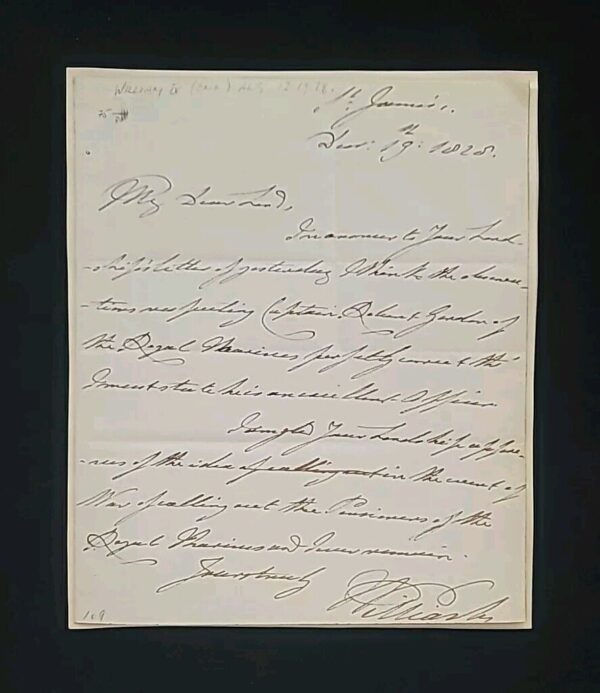 St. James's.
Dec: 19th: 1828.
My dear Lord,
In answer to Your Lord-
-ship's letter of yesterday I think the
respecting Captain Robert Gordon of
the Royal Marines perfectly correct tho'
I must state he is an excellent Officer
I am glad Your Lordship approv-
-es of the idea of calling out in the event of
War of calling out the Pensioners of the
Royal Marines and I ever remain
Yours truly
William
169